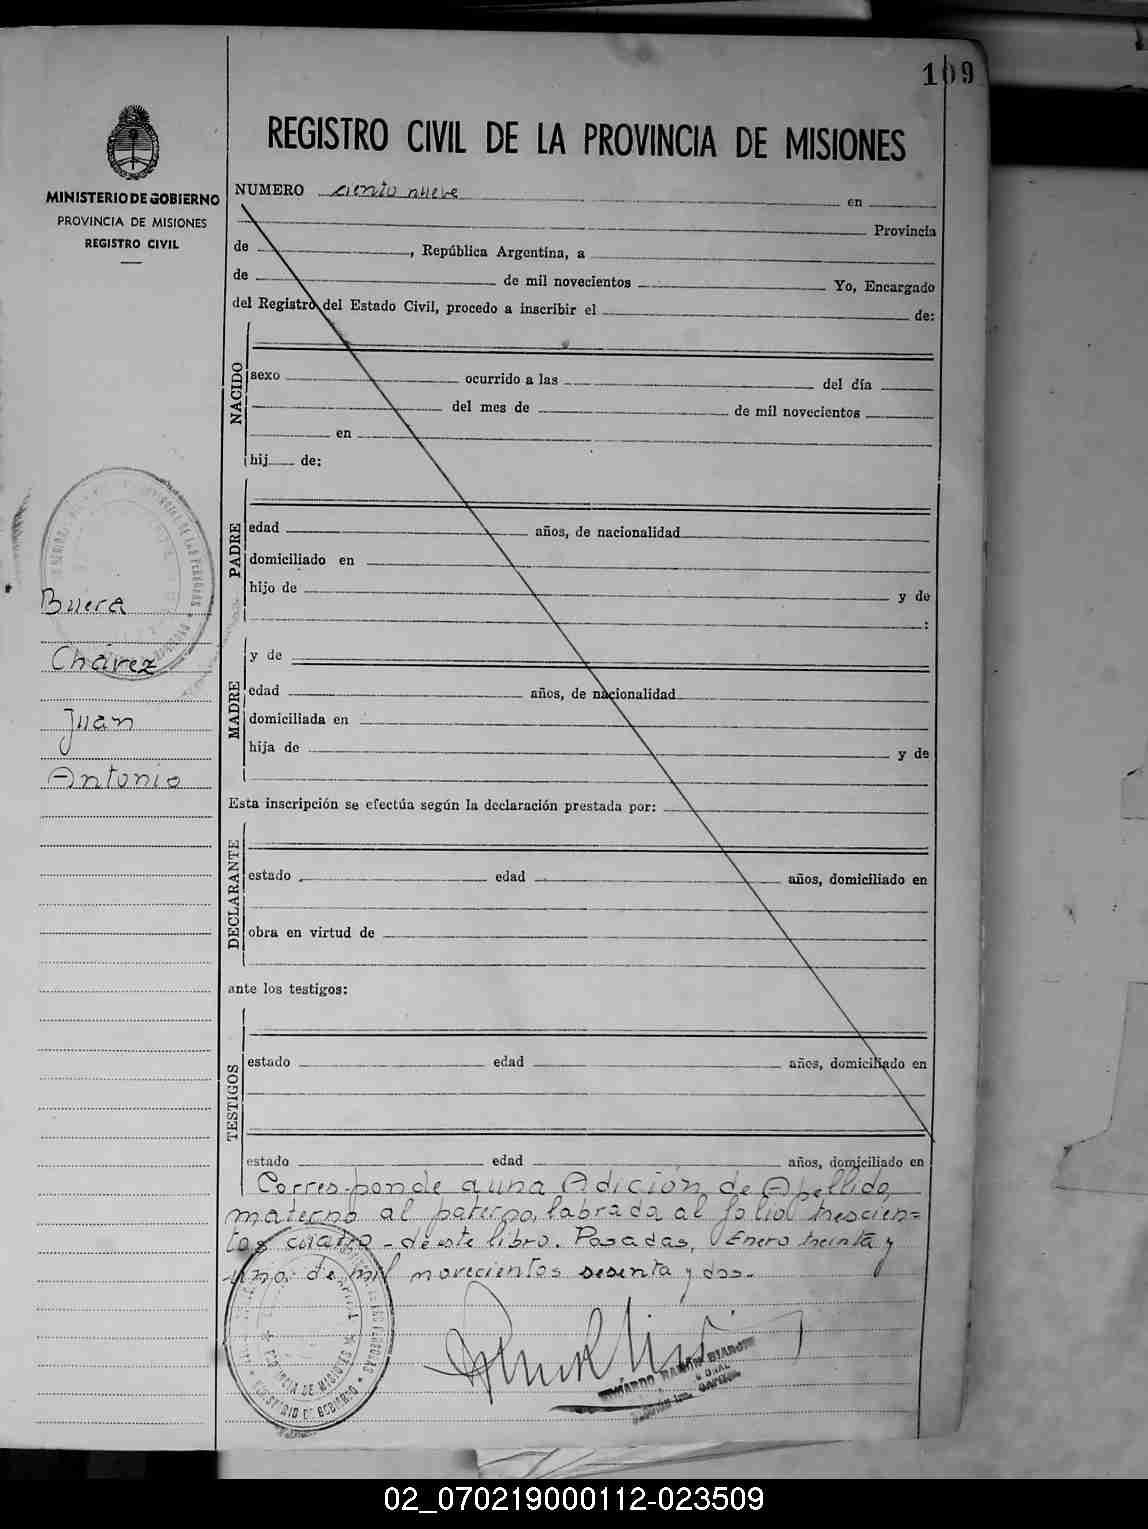 109
REGISTRO CIVIL DE LA PROVINCIA DE MISIONES
MINISTERIO DE GOBIERNO
PROVINCIA DE MISIONES
REGISTRO CIVIL
NUMERO ciento nueve en
Provincia
de , República Argentina, a
de de mil novecientos Yo, Encargado
del Registro del Estado Civil, procedo a inscribir el de:
NACIDO
sexo ocurrido a las del día
del mes de de mil novecientos
en
hij de:
PADRE
edad años, de nacionalidad
domiciliado en
hijo de y de
:
Buera
Chávez
Juan
Antonio
MADRE
y de
edad años, de nacionalidad
domiciliada en
hija de y de
Esta inscripción se efectúa según la declaración prestada por:
DECLARANTE
estado edad años, domiciliado en
obra en virtud de
ante los testigos:
TESTIGOS
estado edad años, domiciliado en
estado edad años, domiciliado en
Corresponde a una Adición de Apellido
materno al paterno, labrada al folio trescien=
tos cuatro - de este libro. Posadas, Enero treinta y
uno de mil novecientos sesenta y dos.
EDUARDO RAMÓN
02_070219000112-023509